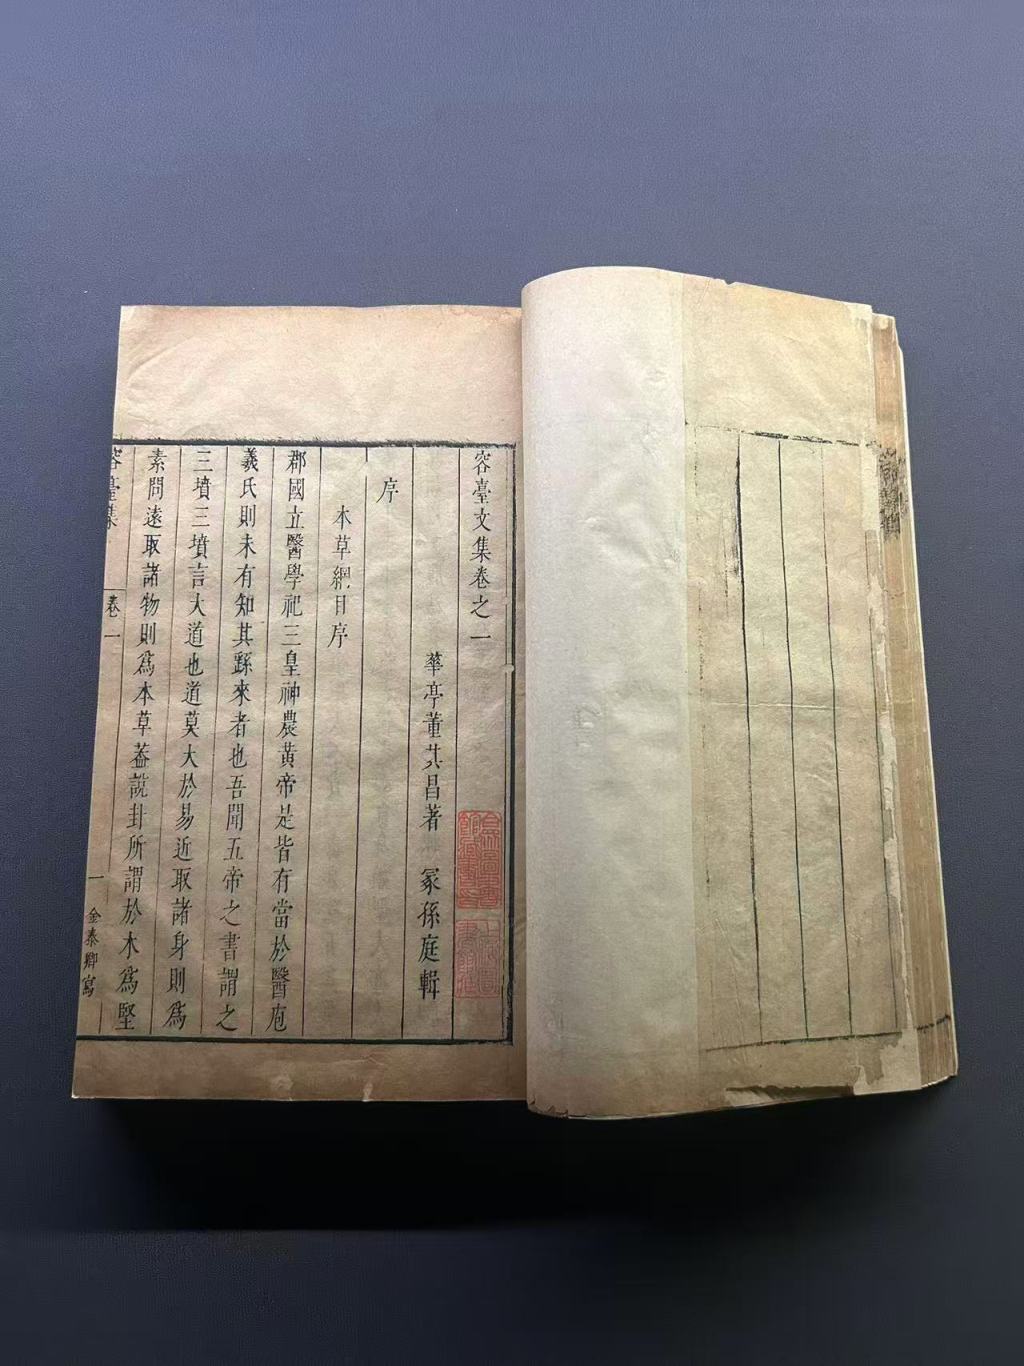 容臺文集卷之一
華亭董其昌著 冢孫庭輯
序
本草綱目序
郡國立醫學祀三皇神農黃帝是皆有當於醫庖
羲氏則未有知其繇來者也吾聞五帝之書謂之
三墳三墳言大道也道莫大於易近取諸身則爲
素問遠取諸物則爲本草葢說卦所謂於木爲堅
容臺集
卷一
一
金泰卿寫